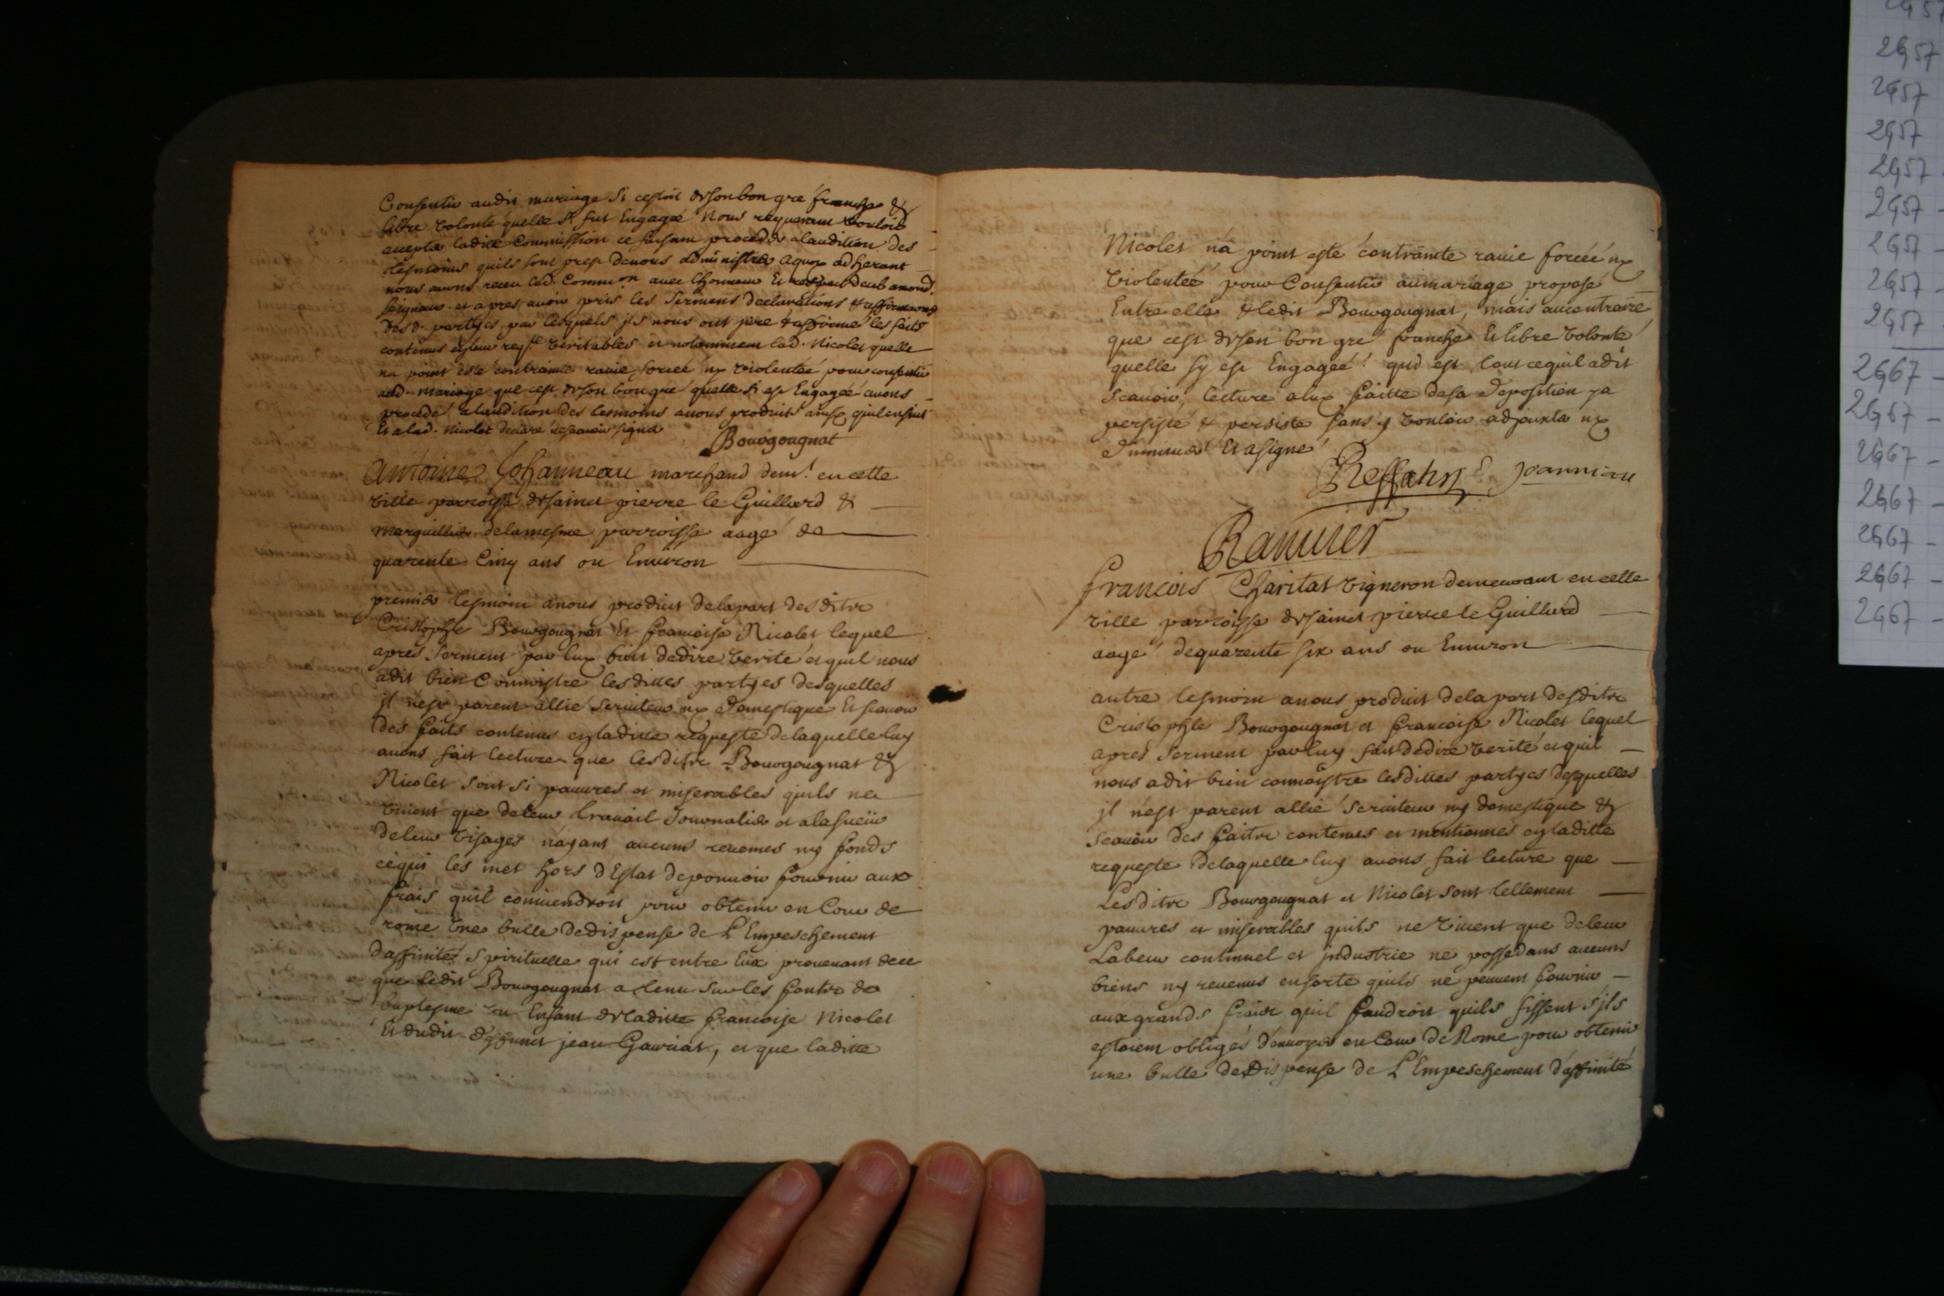 Consentir audit mariage si cestoit de son bon gré franche &
libre volonté quelle sy fut Engagée Nous requerant vouloir
accepter ladite Commission ce faisant proceder a laudition des
tesmoins quils sont prest denous administrer aquoy adherant
nous avons receu lad. Common avec lhonneur Et respect deub amond.
seigneur et apres avoir pris les serments declarations & affirmaons
desd. partyes par lesquels ils nous ont juré & affirmé les faits
contenus en leur reqte veritables et notamment lad. Nicolet quelle
na point esté contrainte ravie forcée ny violentée pour consentir
aud. mariage que cest de son bon gré quelle sy est Engagée avons
procedé a laudition des tesmoins anous produits ainsy quil ensuit
Et a lad. Nicolet declaré ne scavoir signer
Bourgougnat
Antoine Johanneau marchand demt. en cette
ville parroisse de saint pierre le Guillard &
marguillier de la mesme parroisse aagé de
quarente Cinq ans ou Environ
premier tesmoin anous produit de la part desdits
Cristophle Bourgougnat Et francoise Nicolet lequel
apres serment par luy fait de dire verité et quil nous
adit bien Connoistre lesdittes partyes desquelles
il nest parent allié serviteur ny domestique Et scavoir
des faits contenus en laditte requeste de laquelle luy
avons fait lecture que lesdits Bourgougnat &
Nicolet sont si pauvres et miserables quils ne
vivent que de leur travail Journalier et a la sueur
de leur visages nayant aucuns revenues ny fonds
cequi les met hors d'Estat de pouvoir fournir aux
frais quil conviendroit pour obtenir en Cour de
rome une bulle de dispense de L'Empeschement
daffinité spirituelle qui est entre Eux provenant de ce
que ledit Bourgougnat a tenu sur les fonts de
baptesme un Enfant de laditte francoise Nicolet
Et dudit deffunct jean Gauriat, et que laditte
Nicolet na point esté contrainte ravie forcée ny
violentée pour Consentir au mariage proposé
Entre elle & ledit Bourgougnat, mais au contraire
que cest de son bon gré franche Et libre volonté
quelle sy est Engagée qui est tout ce quil a dit
scavoir, lecture a luy faitte de sa deposition y a
persisté & persiste sans y vouloir adjouter ny
diminuer Et a signé
Joanneau
Ranvier
francois Charitat vigneron demeurant en cette
ville parroisse de saint pierre le Guillard
aagé de quarente six ans ou Environ
autre tesmoin anous produit de la part desdits
Cristophle Bourgougnat et francoise Nicolet lequel
apres serment par luy fait de dire verité et quil
nous a dit bien connoistre lesdittes partyes desquelles
il n'est parent allié serviteur ny domestique &
scavoir des faits contenus et mentionnés en laditte
requeste de laquelle luy avons fait lecture que
Lesdits Bourgougnat et Nicolet sont tellement
pauvres et miserables quils ne vivent que de leur
Labeur continuel et industrie ne possedans aucuns
biens ny revenus en sorte quils ne peuvent fournir
aux grands frais quil faudroit quils fissent s'ils
estoient obligés d'envoyer en Cour de Rome pour obtenir
une bulle de Dispense de L'Empeschement d'affinité
2957
2957
2957
2957
2957
2957 -
2957 -
2957 -
2957 -
2967 -
2967 -
2967 -
2967 -
2967 -
2967 -
2967 -